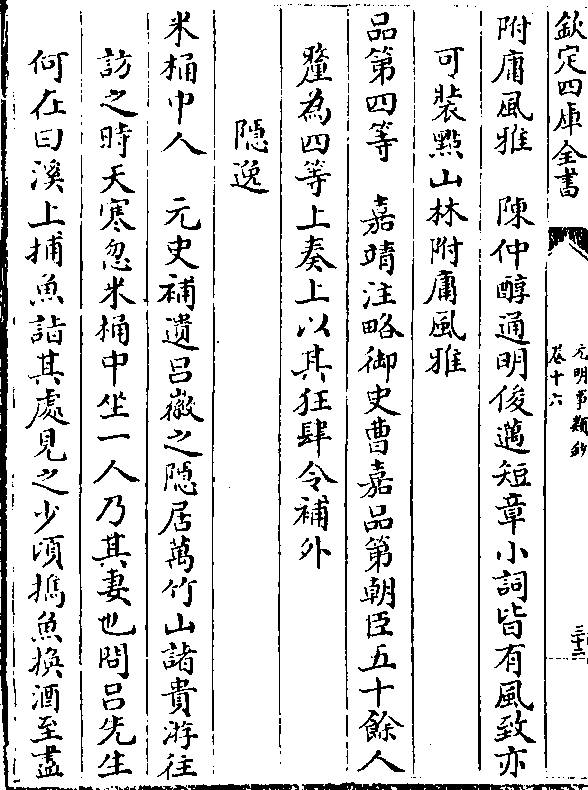 欽定四庫全書
元明事類鈔
卷十六
三十二
附庸風雅　陳仲醇通明俊邁短章小詞皆有風致亦
可裝點山林附庸風雅
品第四等　嘉靖注略御史曹嘉品第朝臣五十餘人
釐為四等上奏上以其狂肆令補外
隱逸
米桶中人　元史補遺呂徽之隱居萬竹山諸貴游往
訪之時天寒忽米桶中坐一人乃其妻也問呂先生
何在曰溪上捕魚詣其處見之少頃攜魚換酒至盡